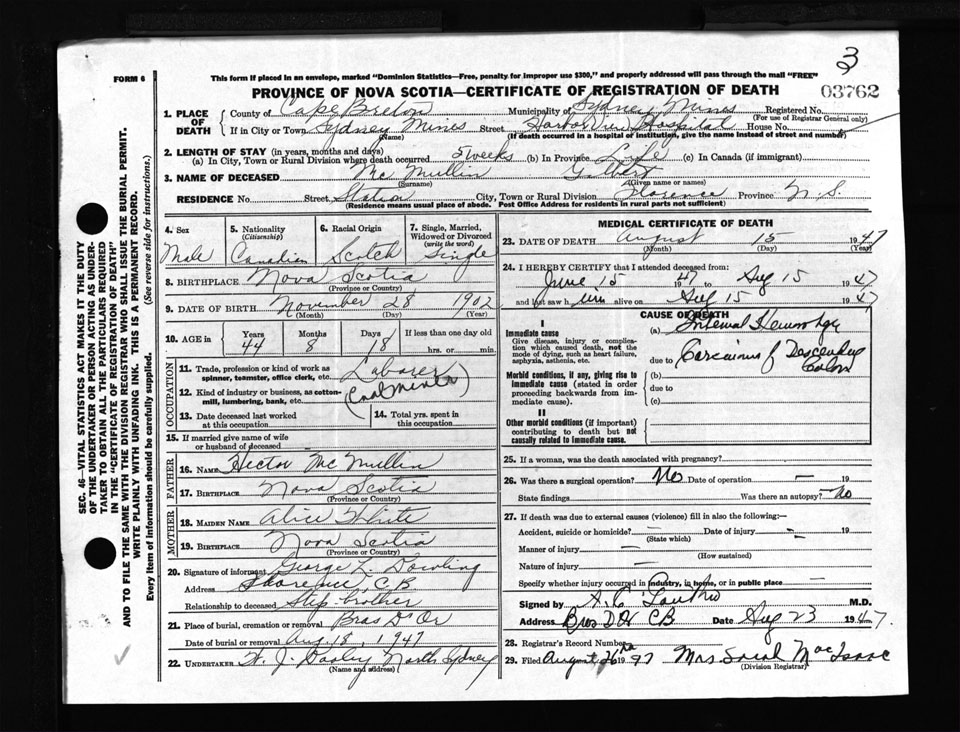 3
FORM 6
This form if placed in an envelope, marked "Dominion Statistics—Free, penalty for improper use $300," and properly addressed will pass through the mail "FREE"
PROVINCE OF NOVA SCOTIA—CERTIFICATE OF REGISTRATION OF DEATH
03762
1. PLACE OF DEATH
County of Cape Breton Municipality of Sydney Mines Registered No.
(For use of Registrar General only)
If in City or Town Sydney Mines Street Harbor View Hospital House No.
(Name) (If death occurred in a hospital or institution, give the name instead of street and number)
2. LENGTH OF STAY (in years, months and days)
(a) In City, Town or Rural Division where death occurred 5 weeks (b) In Province Life (c) In Canada (if immigrant)
3. NAME OF DECEASED Mc Mullin Gilbert
(Surname) (Given name or names)
RESIDENCE No. Street Station City, Town or Rural Division Florence Province N.S.
(Residence means usual place of abode. Post Office Address for residents in rural parts not sufficient)
4. Sex
Male
5. Nationality
(Citizenship)
Canadian
6. Racial Origin
Scotch
7. Single, Married, Widowed or Divorced
(write the word)
Single
8. BIRTHPLACE Nova Scotia
(Province or Country)
9. DATE OF BIRTH November 28 1902
(Month) (Day) (Year)
10. AGE in Years Months Days If less than one day old
44 8 18 hrs. or min.
OCCUPATION
11. Trade, profession or kind of work as spinner, teamster, office clerk, etc. Laborer
12. Kind of industry or business, as cotton-mill, lumbering, bank, etc. (Coal miner)
13. Date deceased last worked at this occupation
14. Total yrs. spent in this occupation
15. If married give name of wife or husband of deceased
FATHER
16. NAME Hector Mc Mullin
17. BIRTHPLACE Nova Scotia
(Province or Country)
MOTHER
18. MAIDEN NAME Alice White
19. BIRTHPLACE Nova Scotia
(Province or Country)
20. Signature of informant George L. Dowling
Address Florence, C.B
Relationship to deceased Step-brother
21. Place of burial, cremation or removal Bras D'Or
Date of burial or removal Aug. 18, 1947
22. UNDERTAKER J. Dooley North Sydney
(Name and address)
MEDICAL CERTIFICATE OF DEATH
23. DATE OF DEATH August 15 1947
(Month) (Day) (Year)
24. I HEREBY CERTIFY that I attended deceased from:
June 15 1947 to Aug 15 1947
and last saw him alive on Aug 15 1947
CAUSE OF DEATH
I
Immediate cause
Give disease, injury or complication which caused death, not the mode of dying, such as heart failure, asphyxia, asthenia, etc.
(a) Internal Hemorrhage
due to Carcinoma of Descending Colon
Morbid conditions, if any, giving rise to immediate cause (stated in order proceeding backwards from immediate cause).
(b)
due to
(c)
II
Other morbid conditions (if important) contributing to death but not causally related to immediate cause.
25. If a woman, was the death associated with pregnancy?
26. Was there a surgical operation? No Date of operation — 19
State findings Was there an autopsy? No
27. If death was due to external causes (violence) fill in also the following:—
Accident, suicide or homicide? — Date of injury — 19
(State which)
Manner of injury —
(How sustained)
Nature of injury —
Specify whether injury occurred in industry, in home, or in public place
Signed by A. C. M.D.
Address Bras D'Or CB Date Aug 23 1947.
28. Registrar's Record Number
29. Filed August 26 1947 Mrs Sarah MacIsaac
(Division Registrar)
SEC. 46—VITAL STATISTICS ACT MAKES IT THE DUTY
OF THE UNDERTAKER OR PERSON ACTING AS UNDER-
TAKER TO OBTAIN ALL THE PARTICULARS REQUIRED
IN THE "CERTIFICATE OF REGISTRATION OF DEATH"
AND TO FILE THE SAME WITH THE DIVISION REGISTRAR WHO SHALL ISSUE THE BURIAL PERMIT.
WRITE PLAINLY WITH UNFADING INK. THIS IS A PERMANENT RECORD.
Every item of information should be carefully supplied. (See reverse side for instructions.)